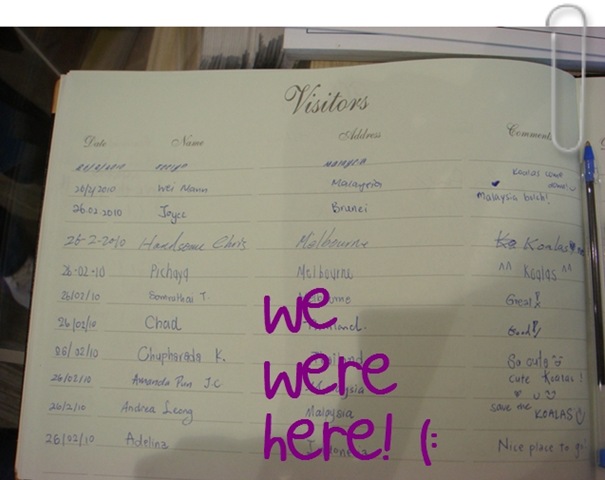 Visitors
Date Name Address Comments
Malaysia Koalas
26/2/2010 Wei Mann Malaysia Malaysia boleh!
26.02.2010 Joyce Brunei
26-2-2010 Handsome Chris Melbourne Koalas
26-02-10 Pichaya Melbourne ^^ Koalas ^^
26/02/10 Somrathai T. Great!
26/02/10 Chad Thailand. Good!
26/02/10 Chupharada K. Thailand So cute
26/02/10 Amanda Pun J.C Malaysia cute Koalas!
26/2/10 Andrea Leong Malaysia save the KOALAS
26/02/10 Adelina Indonesia Nice place to go
we
were
here! (: